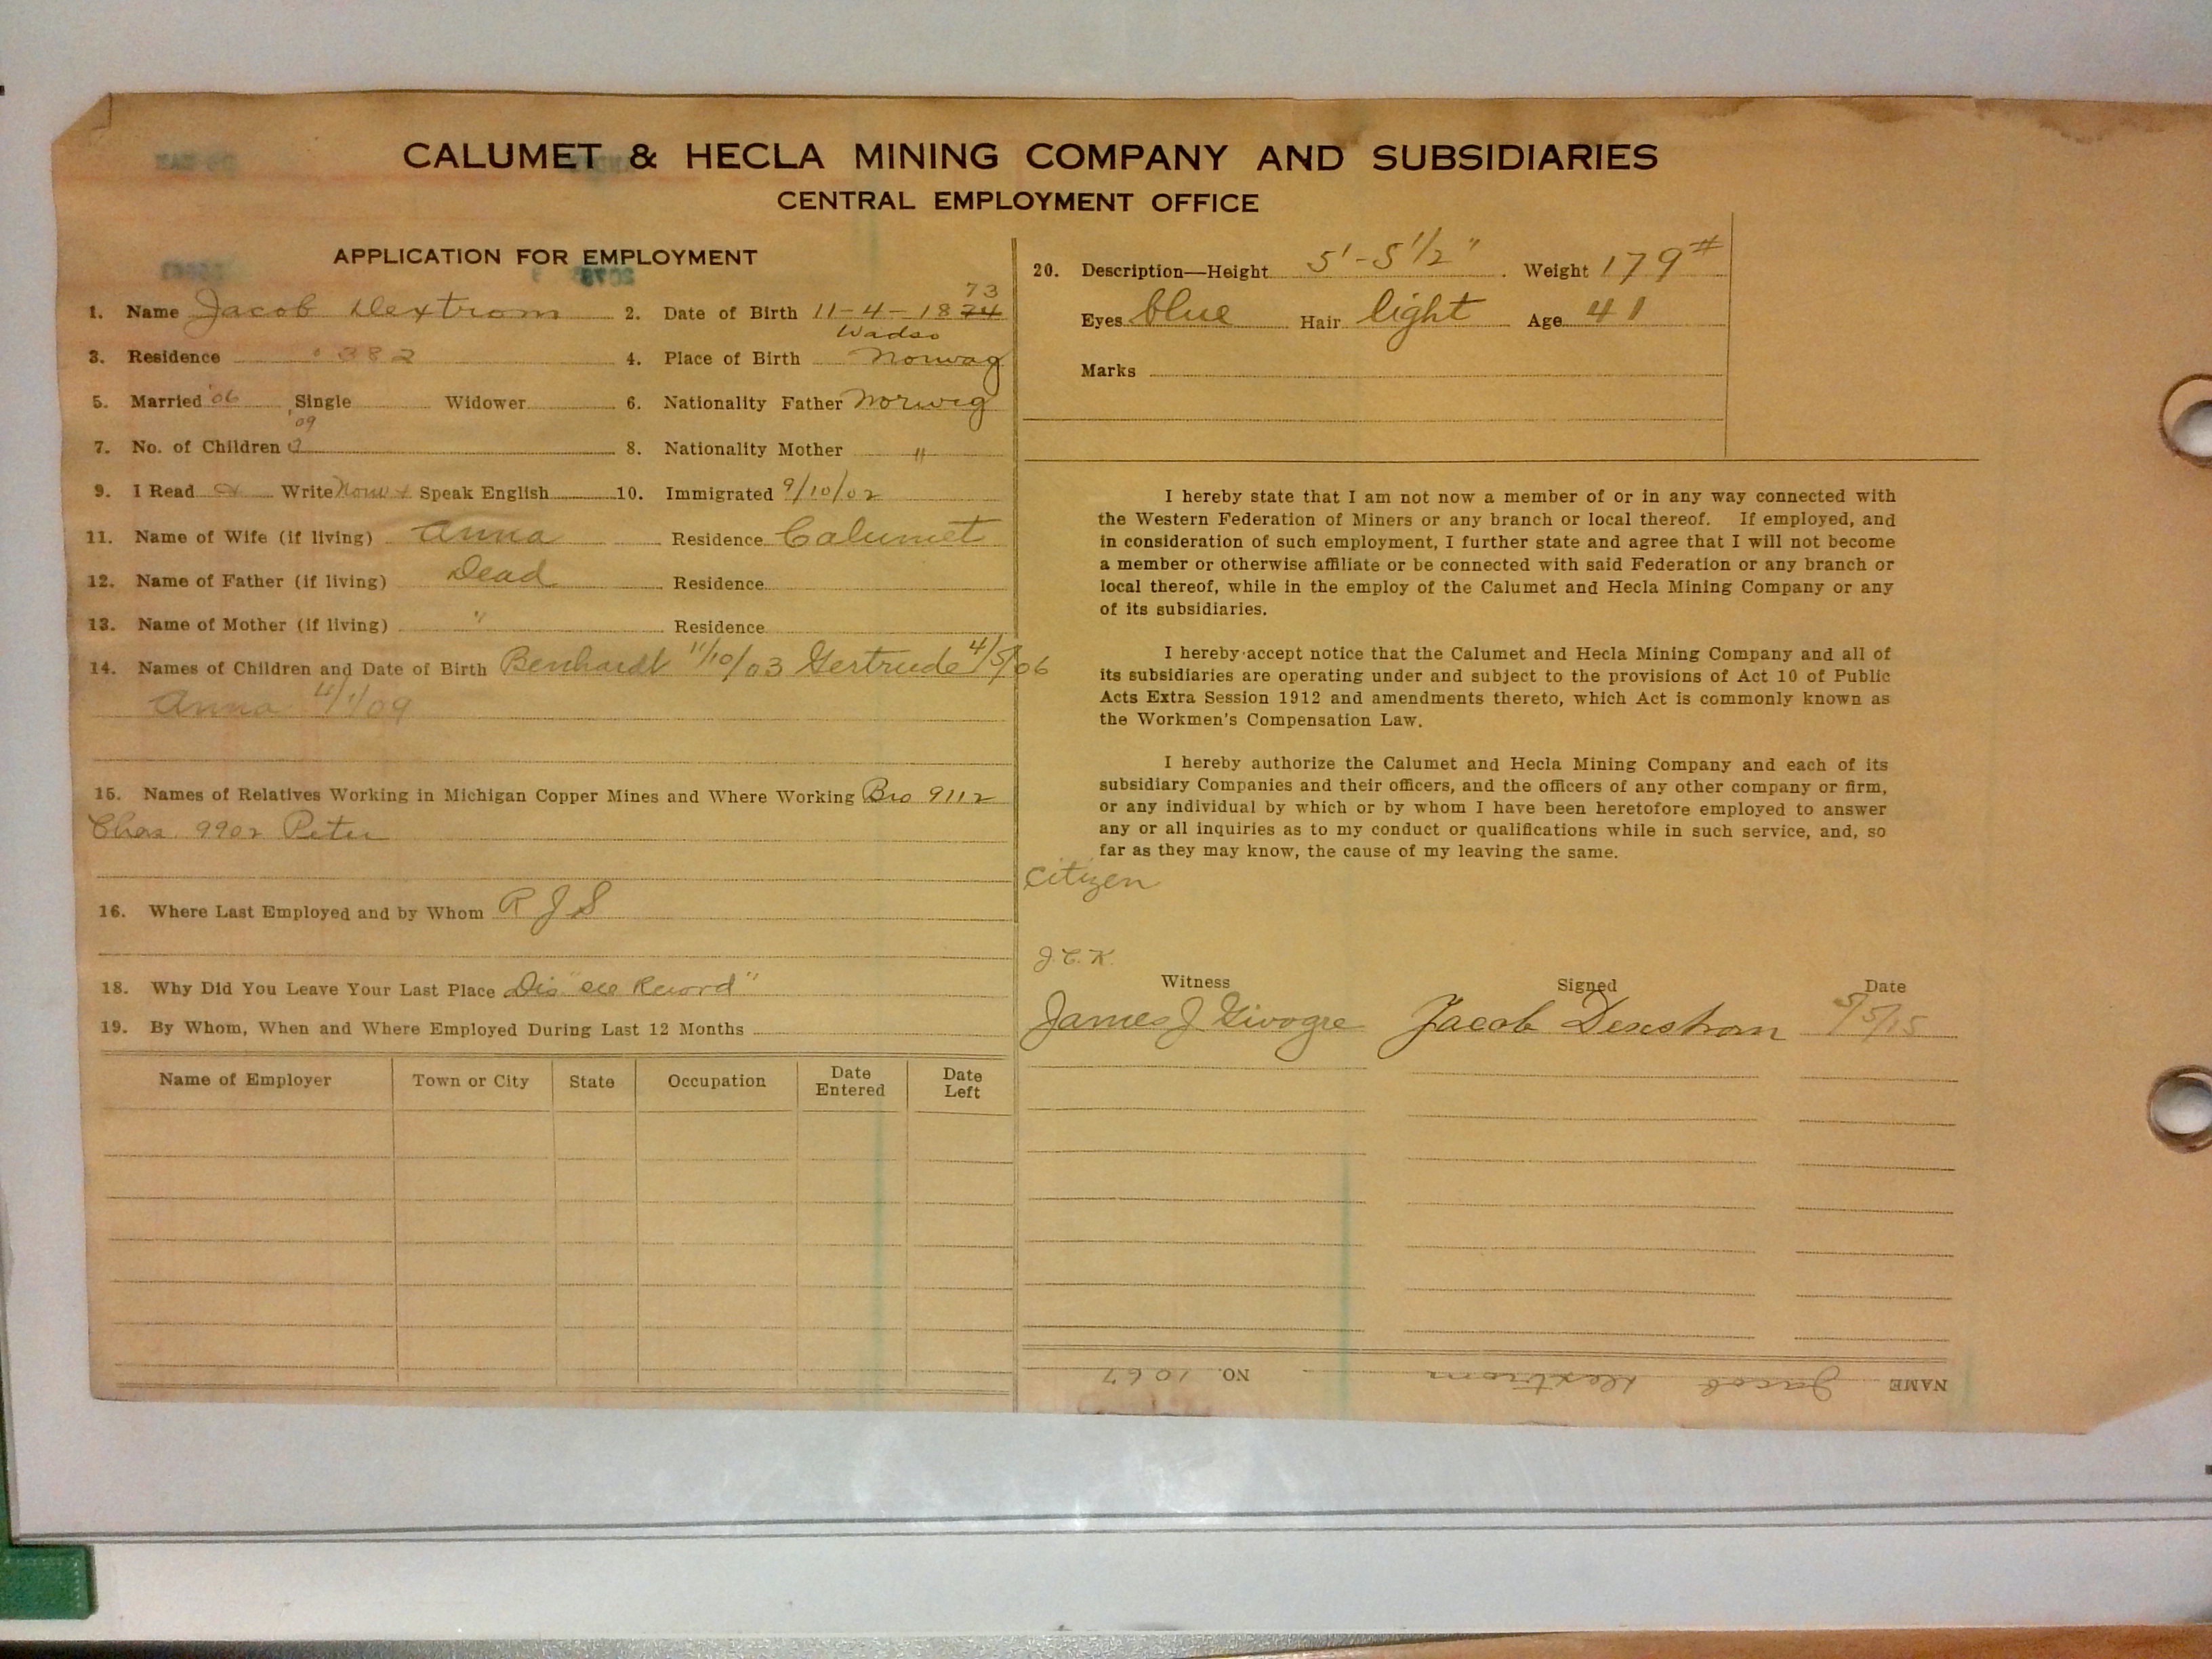 CALUMET & HECLA MINING COMPANY AND SUBSIDIARIES
CENTRAL EMPLOYMENT OFFICE
APPLICATION FOR EMPLOYMENT
73
1. Name Jacob Dextrom 2. Date of Birth 11-4-1874
Wadso
3. Residence 382 4. Place of Birth Norway
5. Married '06 Single Widower 6. Nationality Father Norweg
'09
7. No. of Children 3 8. Nationality Mother "
9. I Read & Write Norw + Speak English 10. Immigrated 9/10/02
11. Name of Wife (if living) Anna Residence Calumet
12. Name of Father (if living) Dead Residence
13. Name of Mother (if living) " Residence
14. Names of Children and Date of Birth Benhardt 11/10/03 Gertrude 4/5/06
Anna 4/1/09
15. Names of Relatives Working in Michigan Copper Mines and Where Working Bro 9112
Chas. 9902 Peter
16. Where Last Employed and by Whom R J S
18. Why Did You Leave Your Last Place Dis "see Record"
19. By Whom, When and Where Employed During Last 12 Months
Name of Employer Town or City State Occupation Date Entered Date Left
20. Description—Height 5'-5 1/2" Weight 179#
Eyes blue Hair light Age 41
Marks
I hereby state that I am not now a member of or in any way connected with
the Western Federation of Miners or any branch or local thereof. If employed, and
in consideration of such employment, I further state and agree that I will not become
a member or otherwise affiliate or be connected with said Federation or any branch or
local thereof, while in the employ of the Calumet and Hecla Mining Company or any
of its subsidiaries.
I hereby accept notice that the Calumet and Hecla Mining Company and all of
its subsidiaries are operating under and subject to the provisions of Act 10 of Public
Acts Extra Session 1912 and amendments thereto, which Act is commonly known as
the Workmen's Compensation Law.
I hereby authorize the Calumet and Hecla Mining Company and each of its
subsidiary Companies and their officers, and the officers of any other company or firm,
or any individual by which or by whom I have been heretofore employed to answer
any or all inquiries as to my conduct or qualifications while in such service, and, so
far as they may know, the cause of my leaving the same.
Citizen
J.C.K.
Witness Signed Date
James J Givogre Jacob Dexstrom 5/5/15
NAME Jacob Dextrom NO. 1067